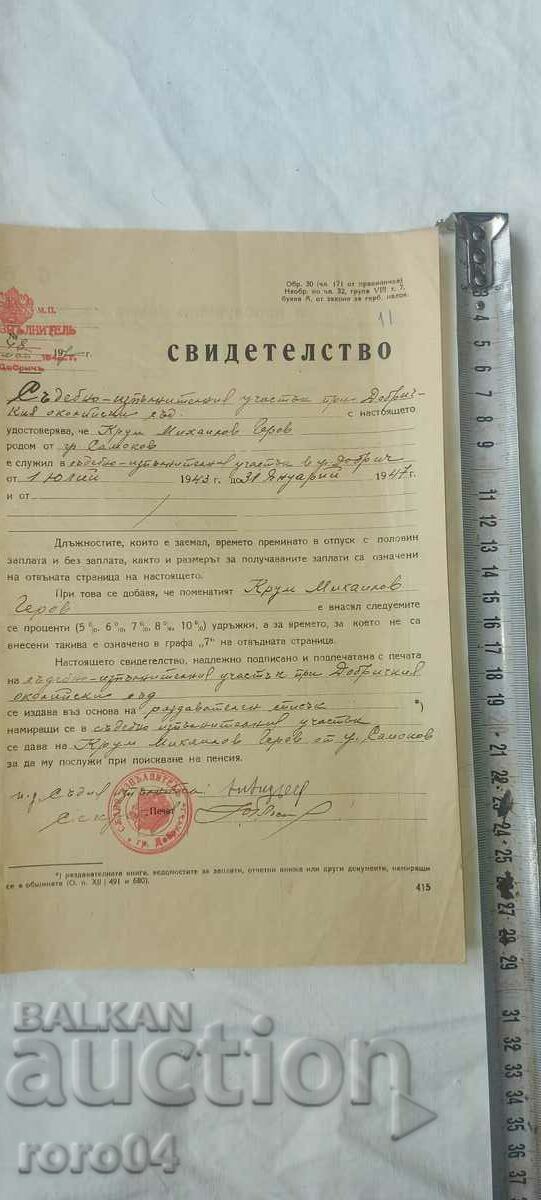 Обр. 30 (чл. 171 от правилника)
Необр. по чл. 32, група VIII т. 7,
буква А, от закона за герб. налог.
М.П.
11
СВИДЕТЕЛСТВО
Съдебно-изпълнителния участък при Добрич-
кия околийски съд с настоящето
удостоверява, че Крум Михаилов Геров
родом от гр Самоков
е служил в съдебно-изпълнителния участък в гр. Добрич
от 1 Юлий 1943 г. до 31 Януарий 1947 г.
и от
Длъжностите, които е заемал, времето преминато в отпуск с половин
заплата и без заплата, както и размерът за получаваните заплати са означени
на отвъдната страница на настоящето.
При това се добавя, че поменатият Крум Михаилов
Геров е внасял следуемите
се проценти (5%, 6%, 7%, 8%, 10%) удръжки, а за времето, за което не са
внесени такива е означено в графа „7“ на отвъдната страница.
Настоящето свидетелство, надлежно подписано и подпечатана с печата
на съдебно-изпълнителния участък при Добричкия
околийски съд
се издава въз основа на раздавателен списък *)
намиращи се в съдебно изпълнителния участък
се дава на Крум Михаилов Геров от гр. Самоков
за да му послужи при поискване на пенсия.
Съдия изпълнител:
Печат
гр. Добрич
*) раздавателните книги, ведомостите за заплати, отчетни книжа или други документи, намиращи
се в общината (О. п. XII | 491 и 680).
415
BALKAN
auction
roro04